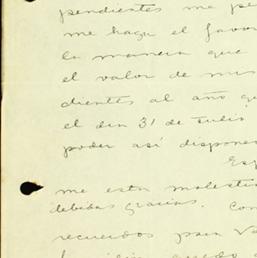 pendientes me pe
me haga el favor
la manera que
el valor de mis
dientes al año qu
el dia 31 de Julio
poder así disponer
Esp
me esta molestia
debidas gracias. Con
recuerdos para Va